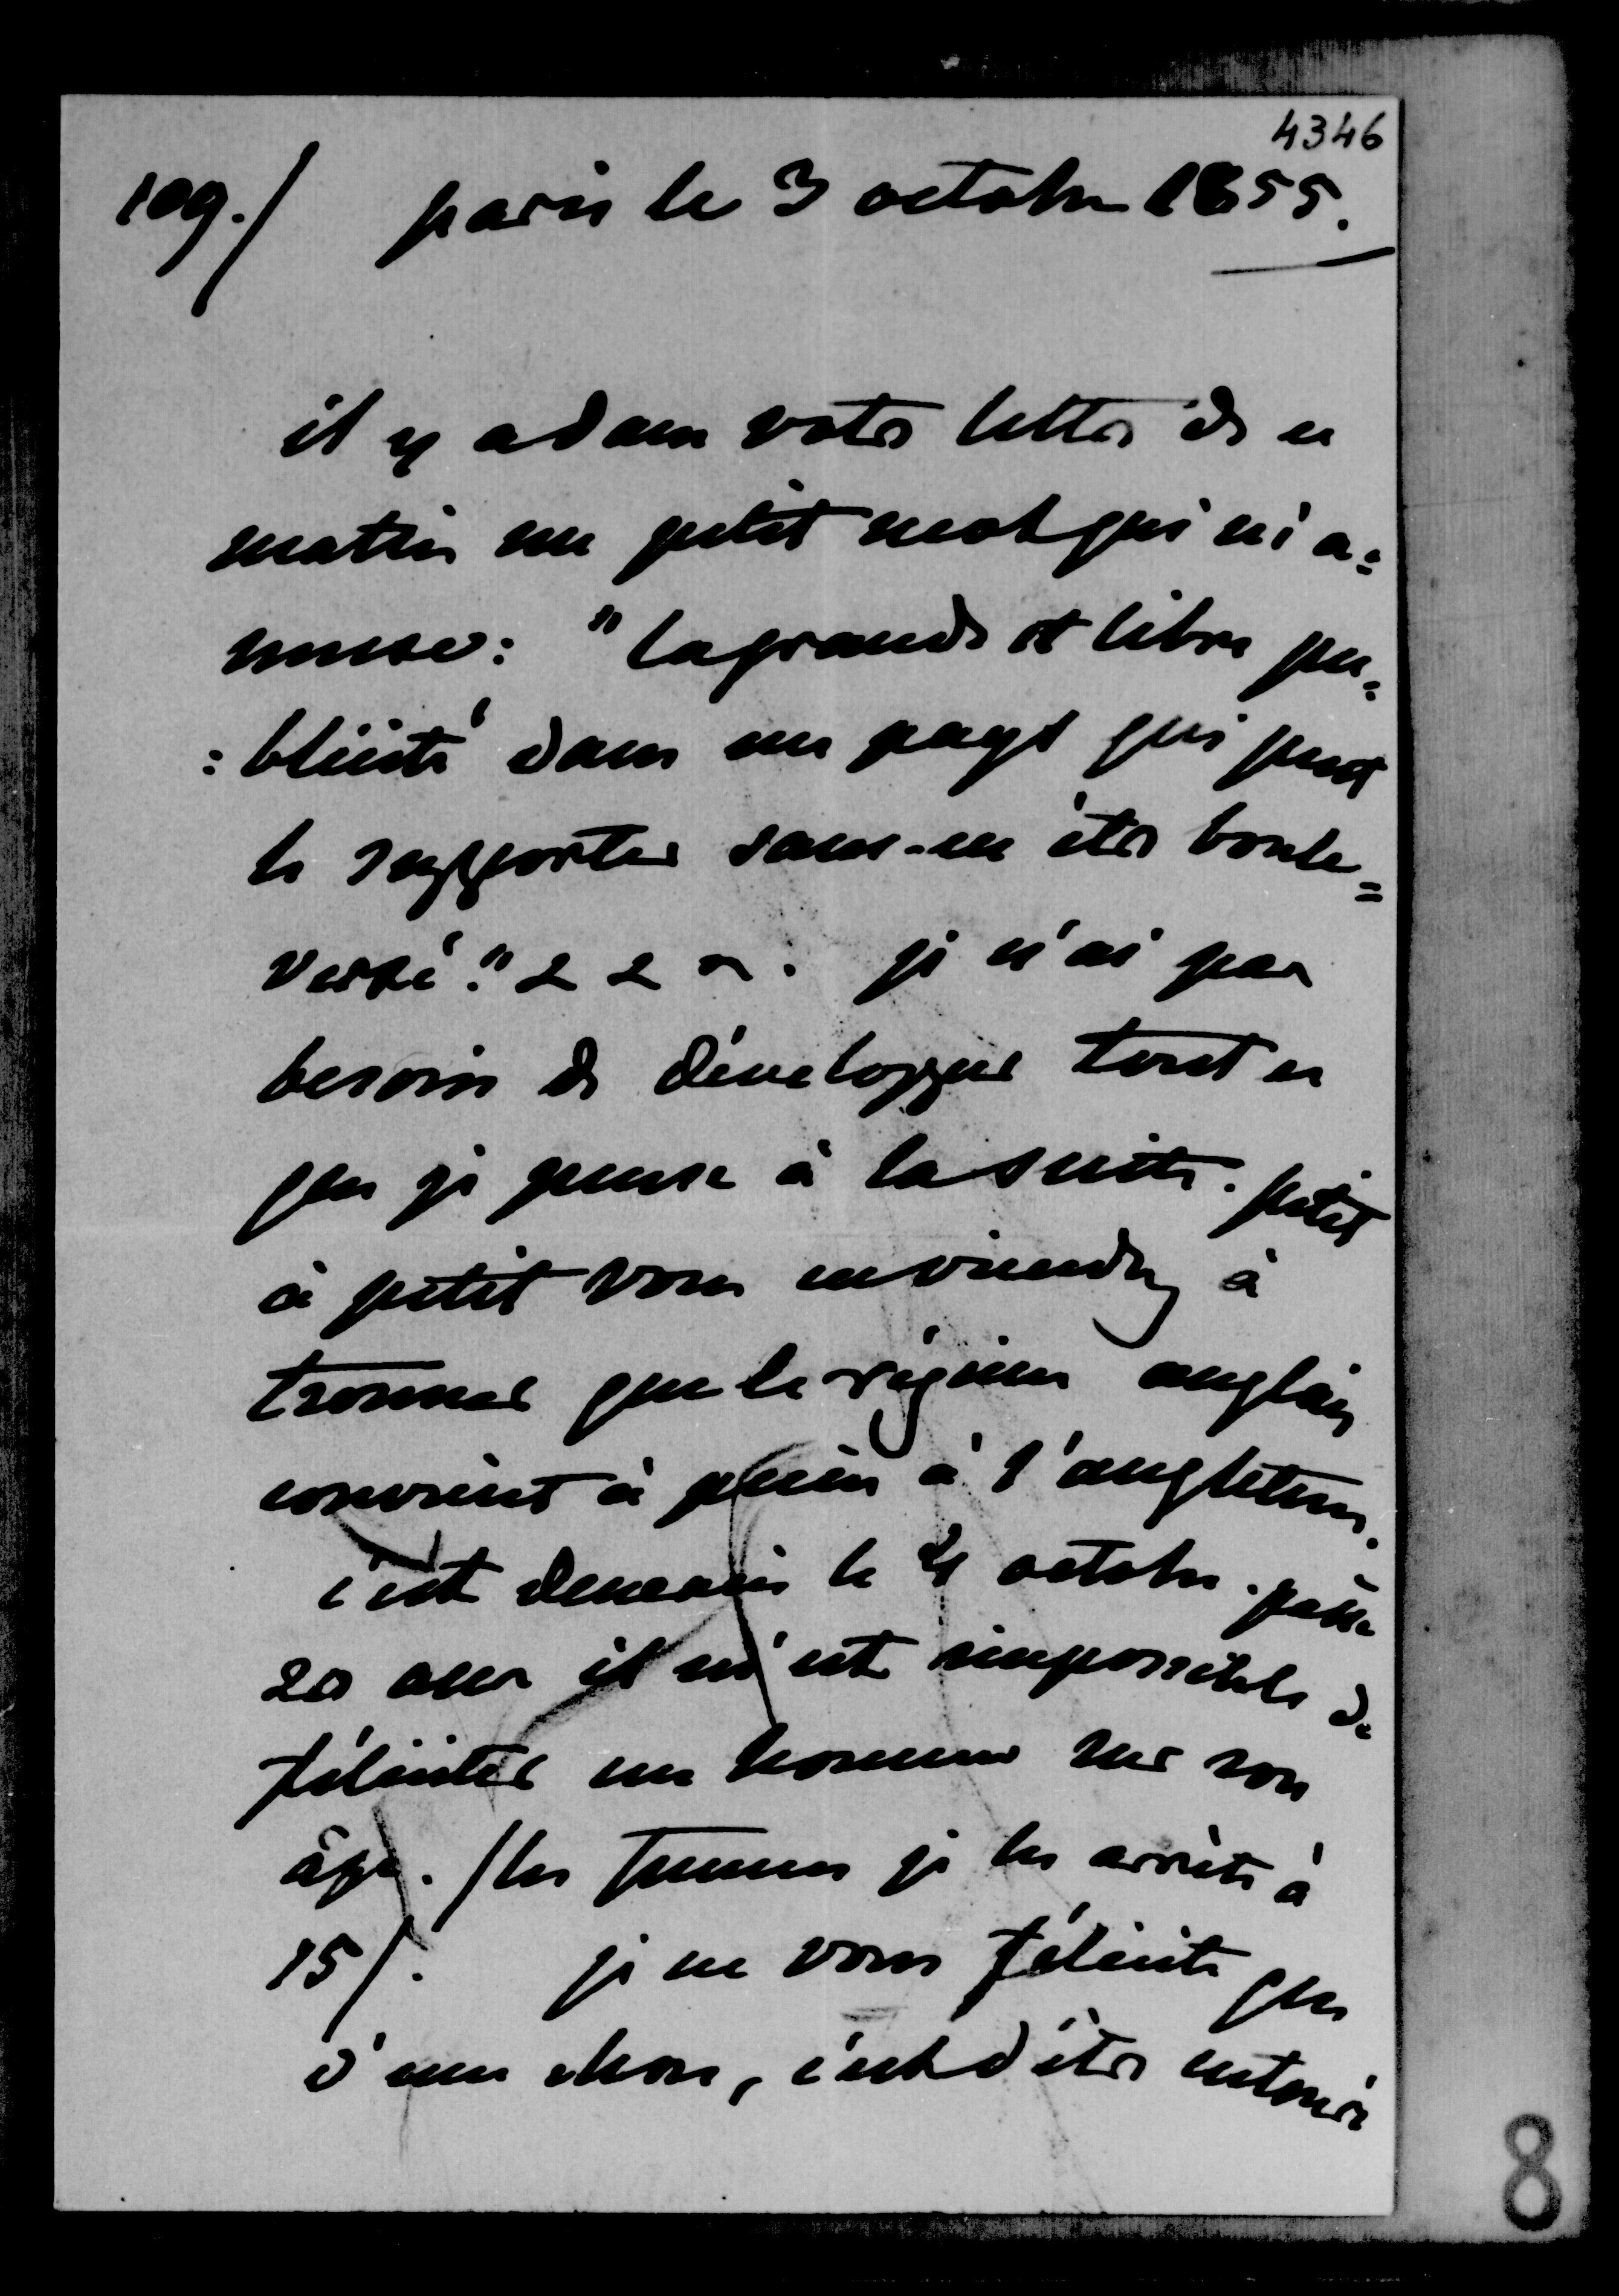 4346
109./ paris le 3 octobre 1855.
il y a dans votre lettre de ce
matin un petit mot qui m'a=
muse: "la grande et libre pu=
=blicité dans un pays qui peut
le supporter sans en être boule=
versé." &&&. je n'ai pas
besoin de développer tout ce
que je pense à la suite. petit
à petit vous en viendrez à
trouver que le régime anglais
convient à peine à l'angleterre.
c'est demain le 4 octobre. passé
20 ans il m'est impossible de
féliciter un homme sur son
âge. /les femmes je les arrête à
15/. je ne vous félicite que
d'une chose, c'est d'être entouré
8